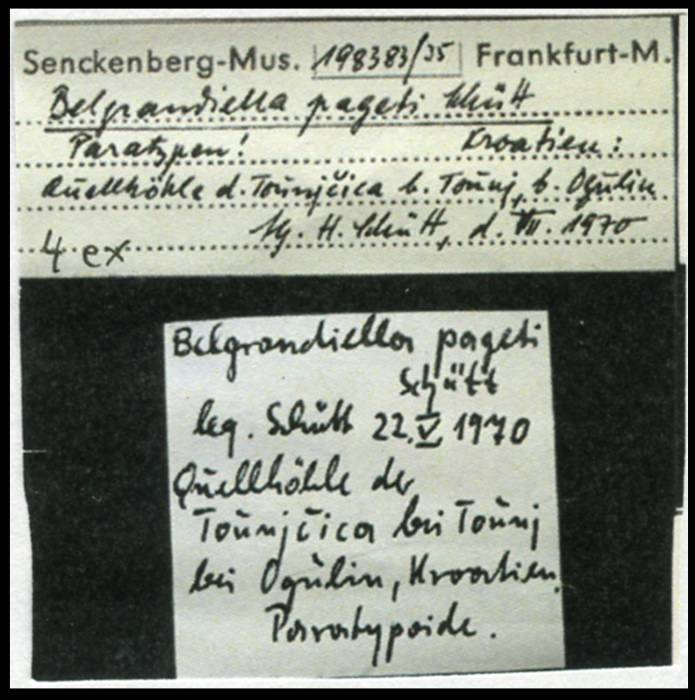 Senckenberg-Mus. 198383/35 Frankfurt-M.
Belgrandiella pageti Schütt
Paratypen! Kroatien:
Quellhöhle d. Tounjčica b. Tounj, b. Ogulin
lg. H. Schütt, d. VII. 1970
4 ex
Belgrandiella pageti
Schütt
leg. Schütt 22.V 1970
Quellhöhle der
Tounjčica bei Tounj
bei Ogulin, Kroatien.
Paratypoide.